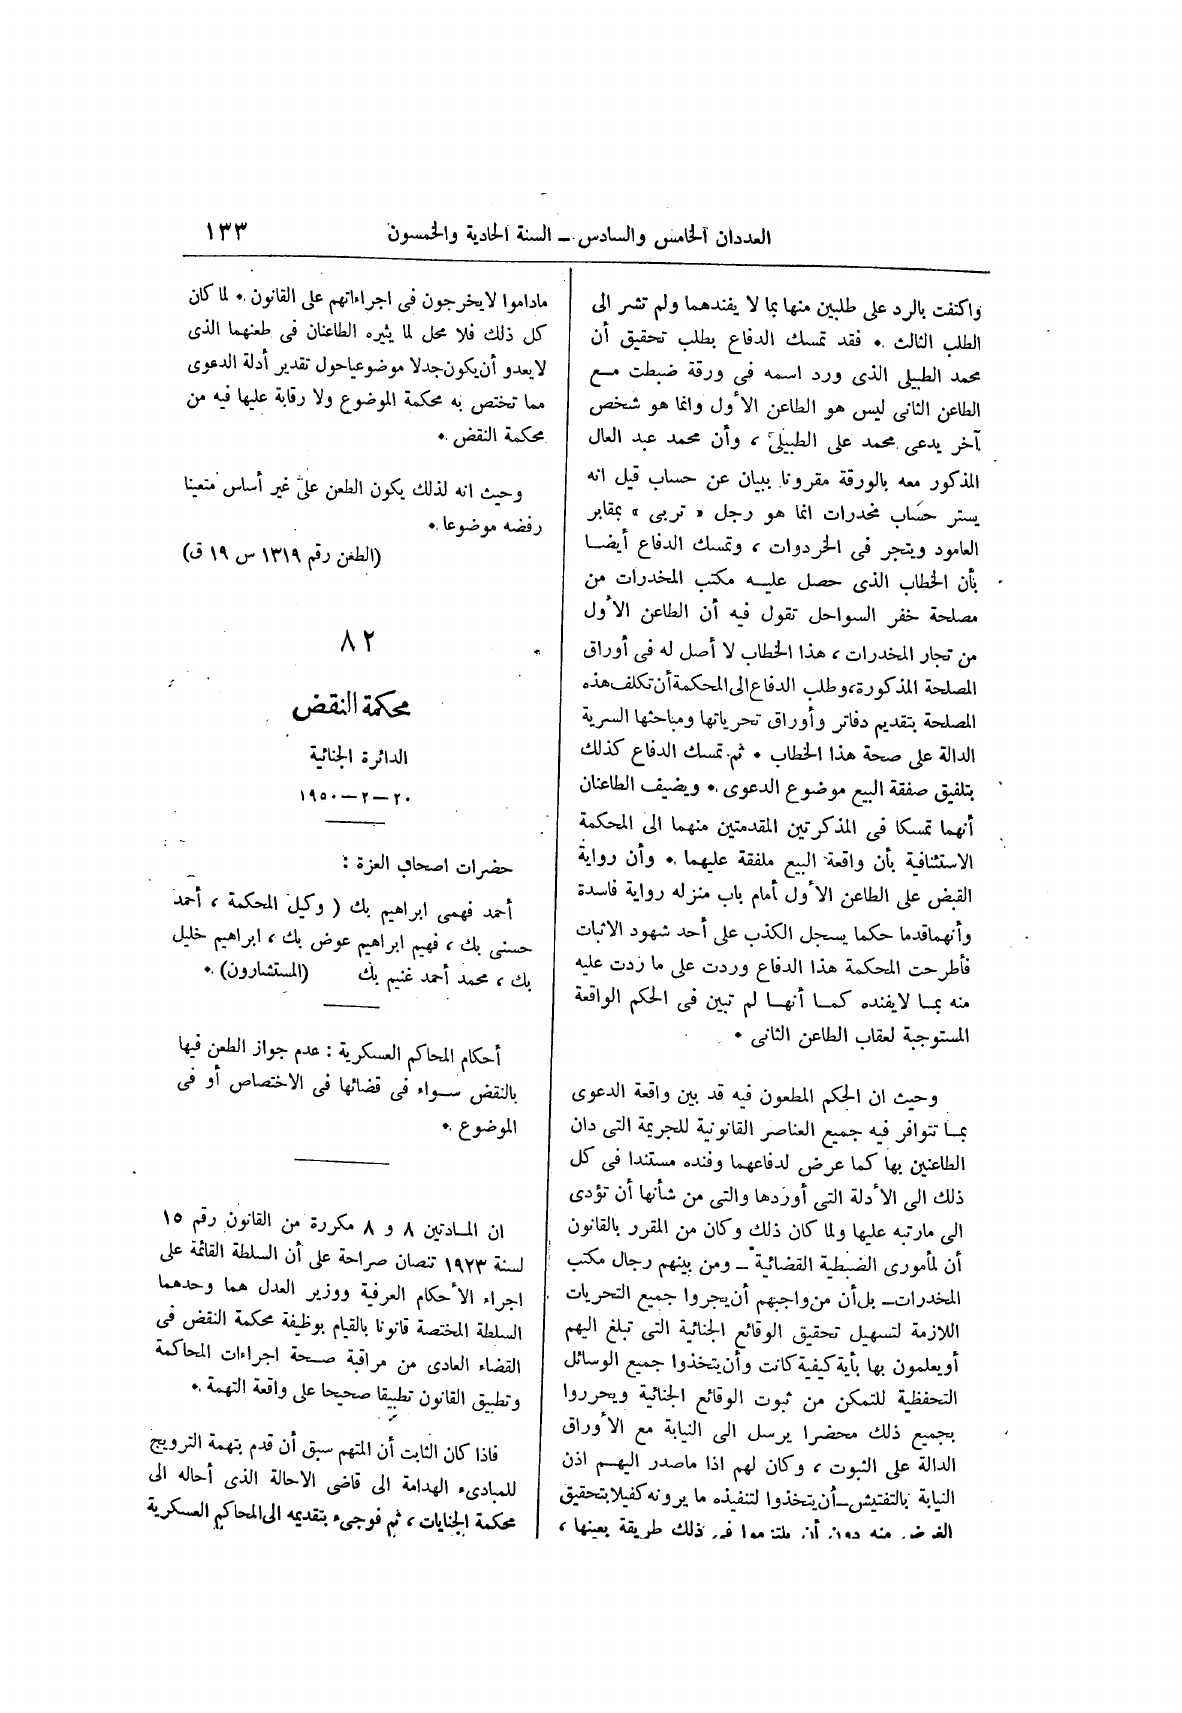 العددان الخامس والسادس — السنة الحادية والخمسون
١٣٣
واكتفت بالرد على طلبين منها بما لا يفندهما ولم تشر الى
الطلب الثالث . فقد تمسك الدفاع بطلب تحقيق أن
محمد الطبيلى الذى ورد اسمه فى ورقة ضبطت مع
الطاعن الثانى ليس هو الطاعن الأول وانما هو شخص
آخر يدعى محمد على الطبيلى ، وأن محمد عبد العال
المذكور معه بالورقة مقرونا ببيان عن حساب قيل انه
يستر حساب مخدرات انما هو رجل « تربى » بمقابر
العامود ويتجر فى الخردوات ، وتمسك الدفاع أيضا
بأن الخطاب الذى حصل عليه مكتب المخدرات من
مصلحة خفر السواحل تقول فيه أن الطاعن الأول
من تجار المخدرات ، هذا الخطاب لا أصل له فى أوراق
المصلحة المذكورة، وطلب الدفاع الى المحكمة أن تكلف هذه
المصلحة بتقديم دفاتر وأوراق تحرياتها ومباحثها السرية
الدالة على صحة هذا الخطاب . ثم تمسك الدفاع كذلك
بتلفيق صفقة البيع موضوع الدعوى . ويضيف الطاعنان
أنهما تمسكا فى المذكرتين المقدمتين منهما الى المحكمة
الاستئنافية بأن واقعة البيع ملفقة عليهما . وأن رواية
القبض على الطاعن الأول أمام باب منزله رواية فاسدة
وأنهما قدما حكما يسجل الكذب على أحد شهود الاثبات
فأطرحت المحكمة هذا الدفاع وردت على ما ردت عليه
منه بما لا يفنده كما أنها لم تبين فى الحكم الواقعة
المستوجبة لعقاب الطاعن الثانى .
وحيث ان الحكم المطعون فيه قد بين واقعة الدعوى
بما تتوافر فيه جميع العناصر القانونية للجريمة التى دان
الطاعنين بها كما عرض لدفاعهما وفنده مستندا فى كل
ذلك الى الأدلة التى أوردها والتى من شأنها أن تؤدى
الى مارتبه عليها ولما كان ذلك وكان من المقرر بالقانون
أن لمأمورى الضبطية القضائية — ومن بينهم رجال مكتب
المخدرات — بل أن من واجبهم أن يجروا جميع التحريات
اللازمة لتسهيل تحقيق الوقائع الجنائية التى تبلغ اليهم
أو يعلمون بها بأية كيفية كانت وأن يتخذوا جميع الوسائل
التحفظية للتمكن من ثبوت الوقائع الجنائية ويحرروا
بجميع ذلك محضرا يرسل الى النيابة مع الأوراق
الدالة على الثبوت ، وكان لهم اذا ماصدر اليهم اذن
النيابة بالتفتيش — أن يتخذوا لتنفيذه ما يرونه كفيلا بتحقيق
الغرض منه دون أن يلتزموا فى ذلك طريقة بعينها ،
ماداموا لا يخرجون فى اجراءاتهم على القانون . لما كان
كل ذلك فلا محل لما يثيره الطاعنان فى طعنهما الذى
لا يعدو أن يكون جدلا موضوعيا حول تقدير أدلة الدعوى
مما تختص به محكمة الموضوع ولا رقابة عليها فيه من
محكمة النقض .
وحيث انه لذلك يكون الطعن على غير أساس متعينا
رفضه موضوعا .
(الطعن رقم ١٣١٩ س ١٩ ق)
٨٢
محكمة النقض
الدائرة الجنائية
٢٠ — ٢ — ١٩٥٠
حضرات اصحاب العزة :
أحمد فهمى ابراهيم بك ( وكيل المحكمة ، أحمد
حسنى بك ، فهيم ابراهيم عوض بك ، ابراهيم خليل
بك ، محمد أحمد غنيم بك (المستشارون) .
أحكام المحاكم العسكرية : عدم جواز الطعن فيها
بالنقض سواء فى قضائها فى الاختصاص أو فى
الموضوع .
ان المادتين ٨ و ٨ مكررة من القانون رقم ١٥
لسنة ١٩٢٣ تنصان صراحة على أن السلطة القائمة على
اجراء الأحكام العرفية ووزير العدل هما وحدهما
السلطة المختصة قانونا بالقيام بوظيفة محكمة النقض فى
القضاء العادى من مراقبة صحة اجراءات المحاكمة
وتطبيق القانون تطبيقا صحيحا على واقعة التهمة .
فاذا كان الثابت أن المتهم سبق أن قدم بتهمة الترويج
للمبادىء الهدامة الى قاضى الاحالة الذى أحاله الى
محكمة الجنايات ، ثم فوجىء بتقديمه الى المحاكم العسكرية